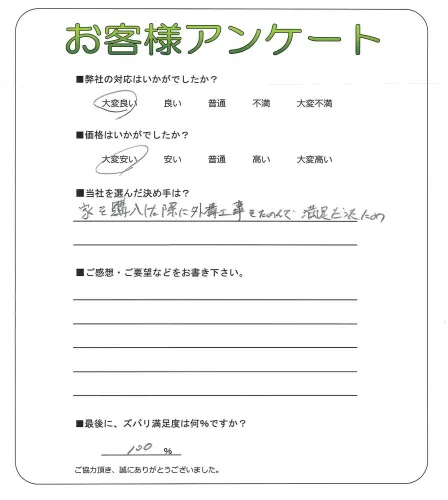 お客様アンケート
■弊社の対応はいかがでしたか?
大変良い 良い 普通 不満 大変不満
■価格はいかがでしたか?
大変安い 安い 普通 高い 大変高い
■当社を選んだ決め手は?
家を購入した際に外構工事をたのんで満足だったため
■ご感想・ご要望などをお書き下さい。
■最後に、ズバリ満足度は何%ですか?
100 %
ご協力頂き、誠にありがとうございました。